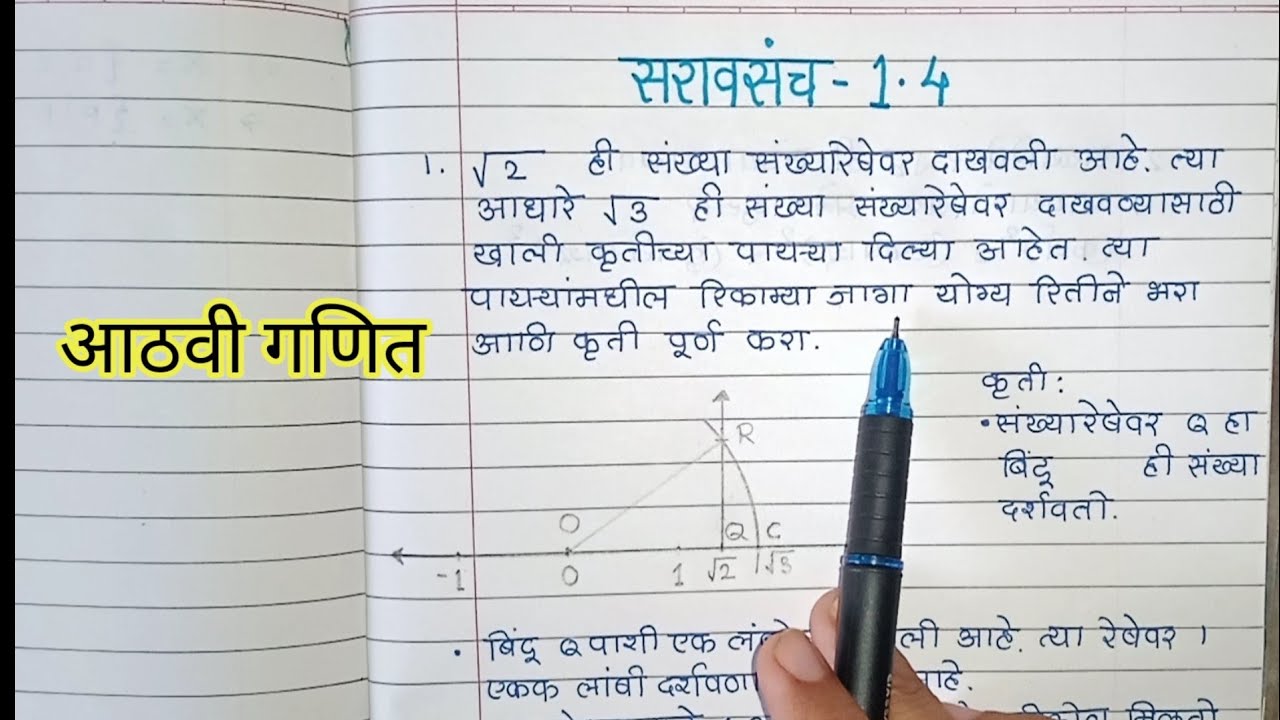 सरावसंच - 1.4
1. √2 ही संख्या संख्यारेषेवर दाखवली आहे. त्या
आधारे √3 ही संख्या संख्यारेषेवर दाखवण्यासाठी
खाली कृतीच्या पायऱ्या दिल्या आहेत. त्या
पायऱ्यांमधील रिकाम्या जागा योग्य रितीने भरा
आणि कृती पूर्ण करा.
आठवी गणित
कृती:
• संख्यारेषेवर Q हा
बिंदू ही संख्या
दर्शवतो.
R
O Q C
-1 0 1 √2 √3
• बिंदू Q पाशी एक ली आहे. त्या रेषेवर 1
एकक लांबी आहे.